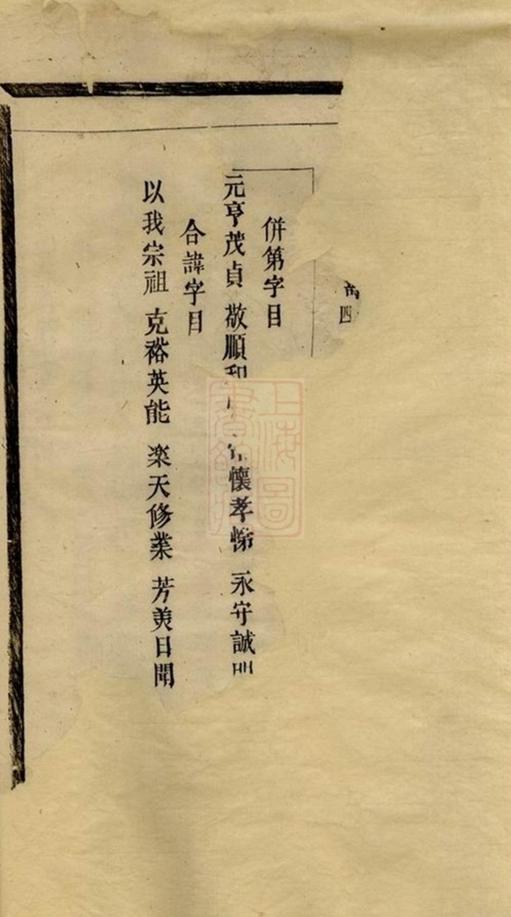 四
併第字目
元亨茂貞 敬順和 懷孝悌 永守誠
合諱字目
以我宗祖 克裕英能 楽天修業 芳羙日聞
上海圖
書館藏